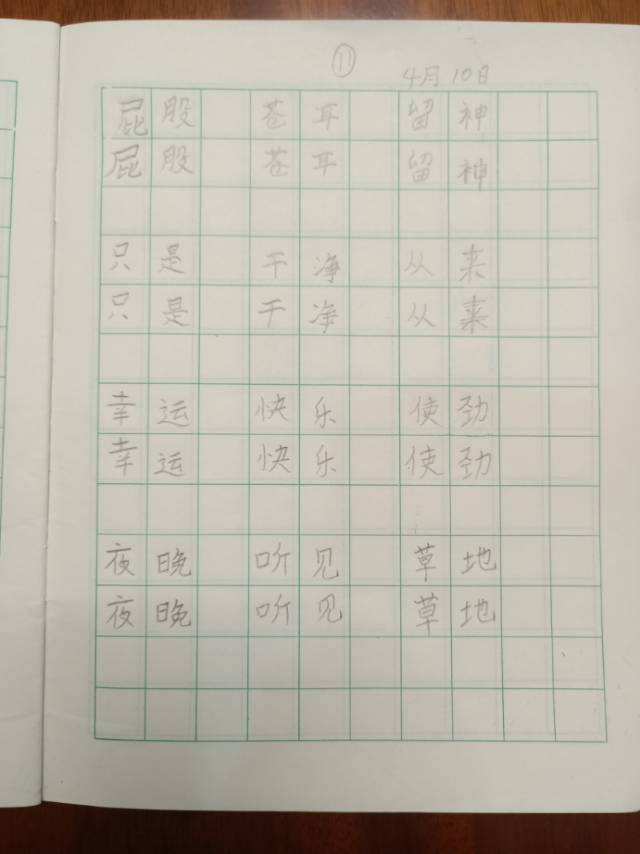 ①
4月10日
屁股 苍耳 留神
屁股 苍耳 留神
只是 干净 从来
只是 干净 从来
幸运 快乐 使劲
幸运 快乐 使劲
夜晚 听见 草地
夜晚 听见 草地